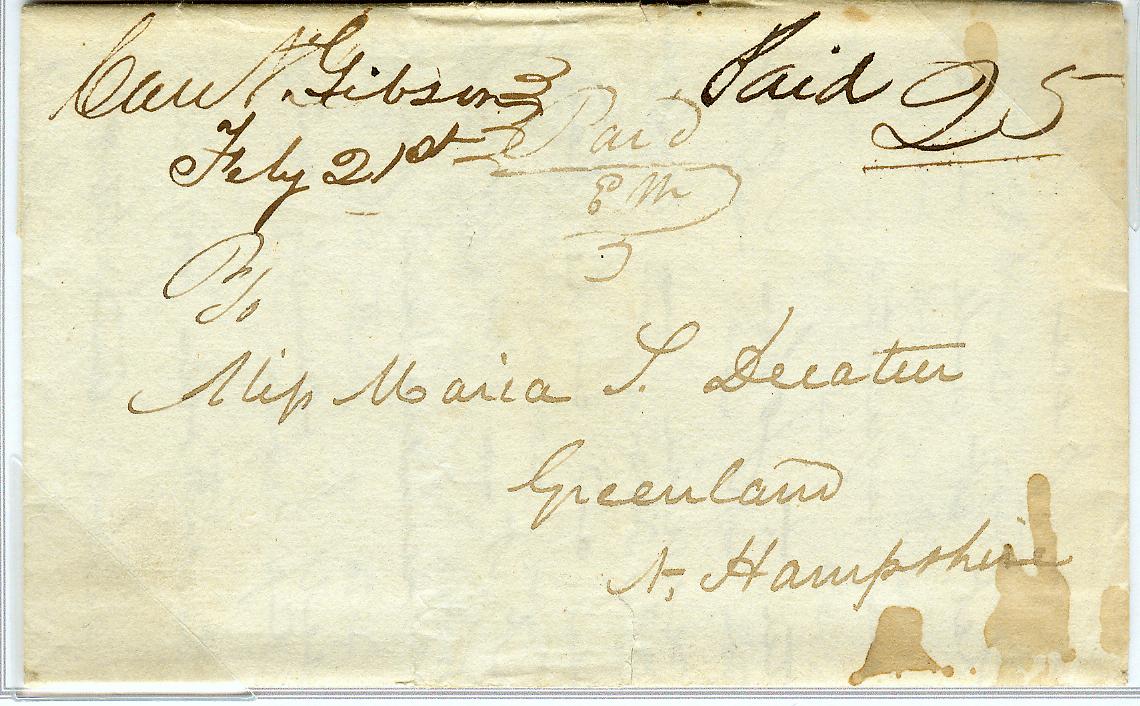 Cant. Gibson
Feby 21st
Paid 25
Paid
To
Miss Maria S. Decatur
Greenland
N. Hampshire